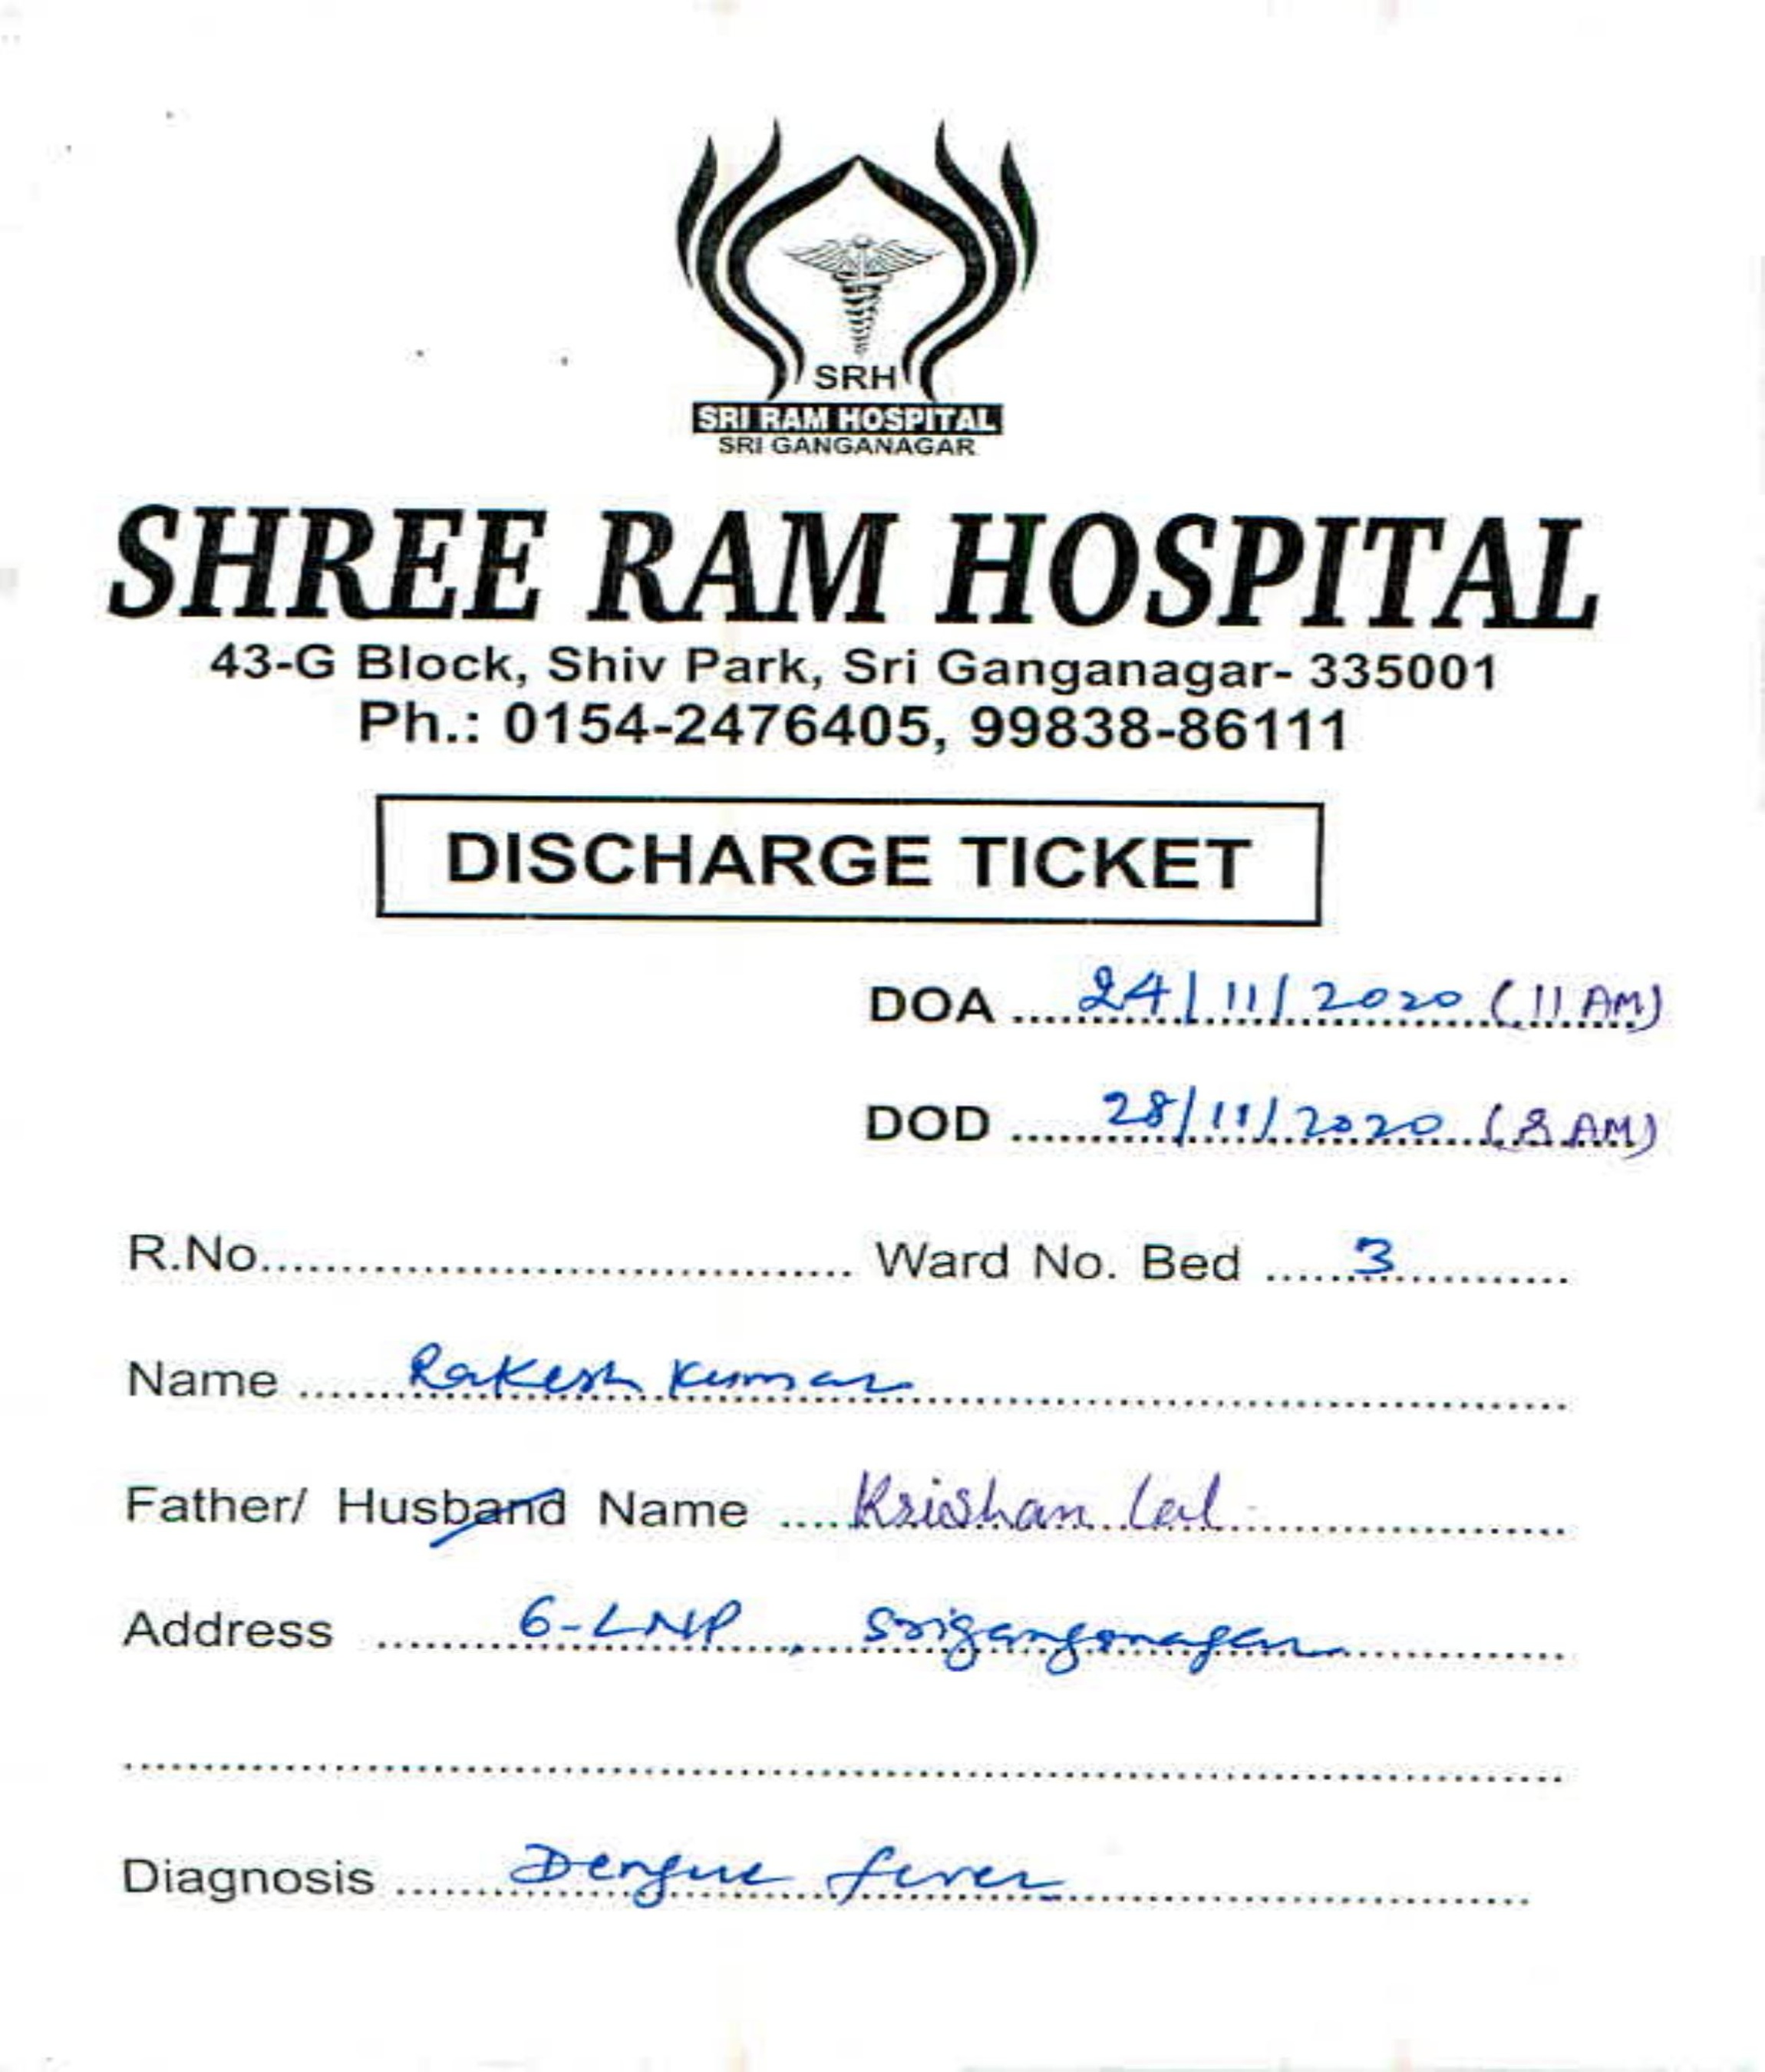 SRH
SRI RAM HOSPITAL
SRI GANGANAGAR
SHREE RAM HOSPITAL
43-G Block, Shiv Park, Sri Ganganagar- 335001
Ph.: 0154-2476405, 99838-86111
DISCHARGE TICKET
DOA 24/11/2020 (11 AM)
DOD 28/11/2020 (8 AM)
R.No. Ward No. Bed 3
Name Rakesh Kumar
Father/ Husband Name Krishan Lal
Address 6-LNP, Sriganganagar
Diagnosis Dengue fever